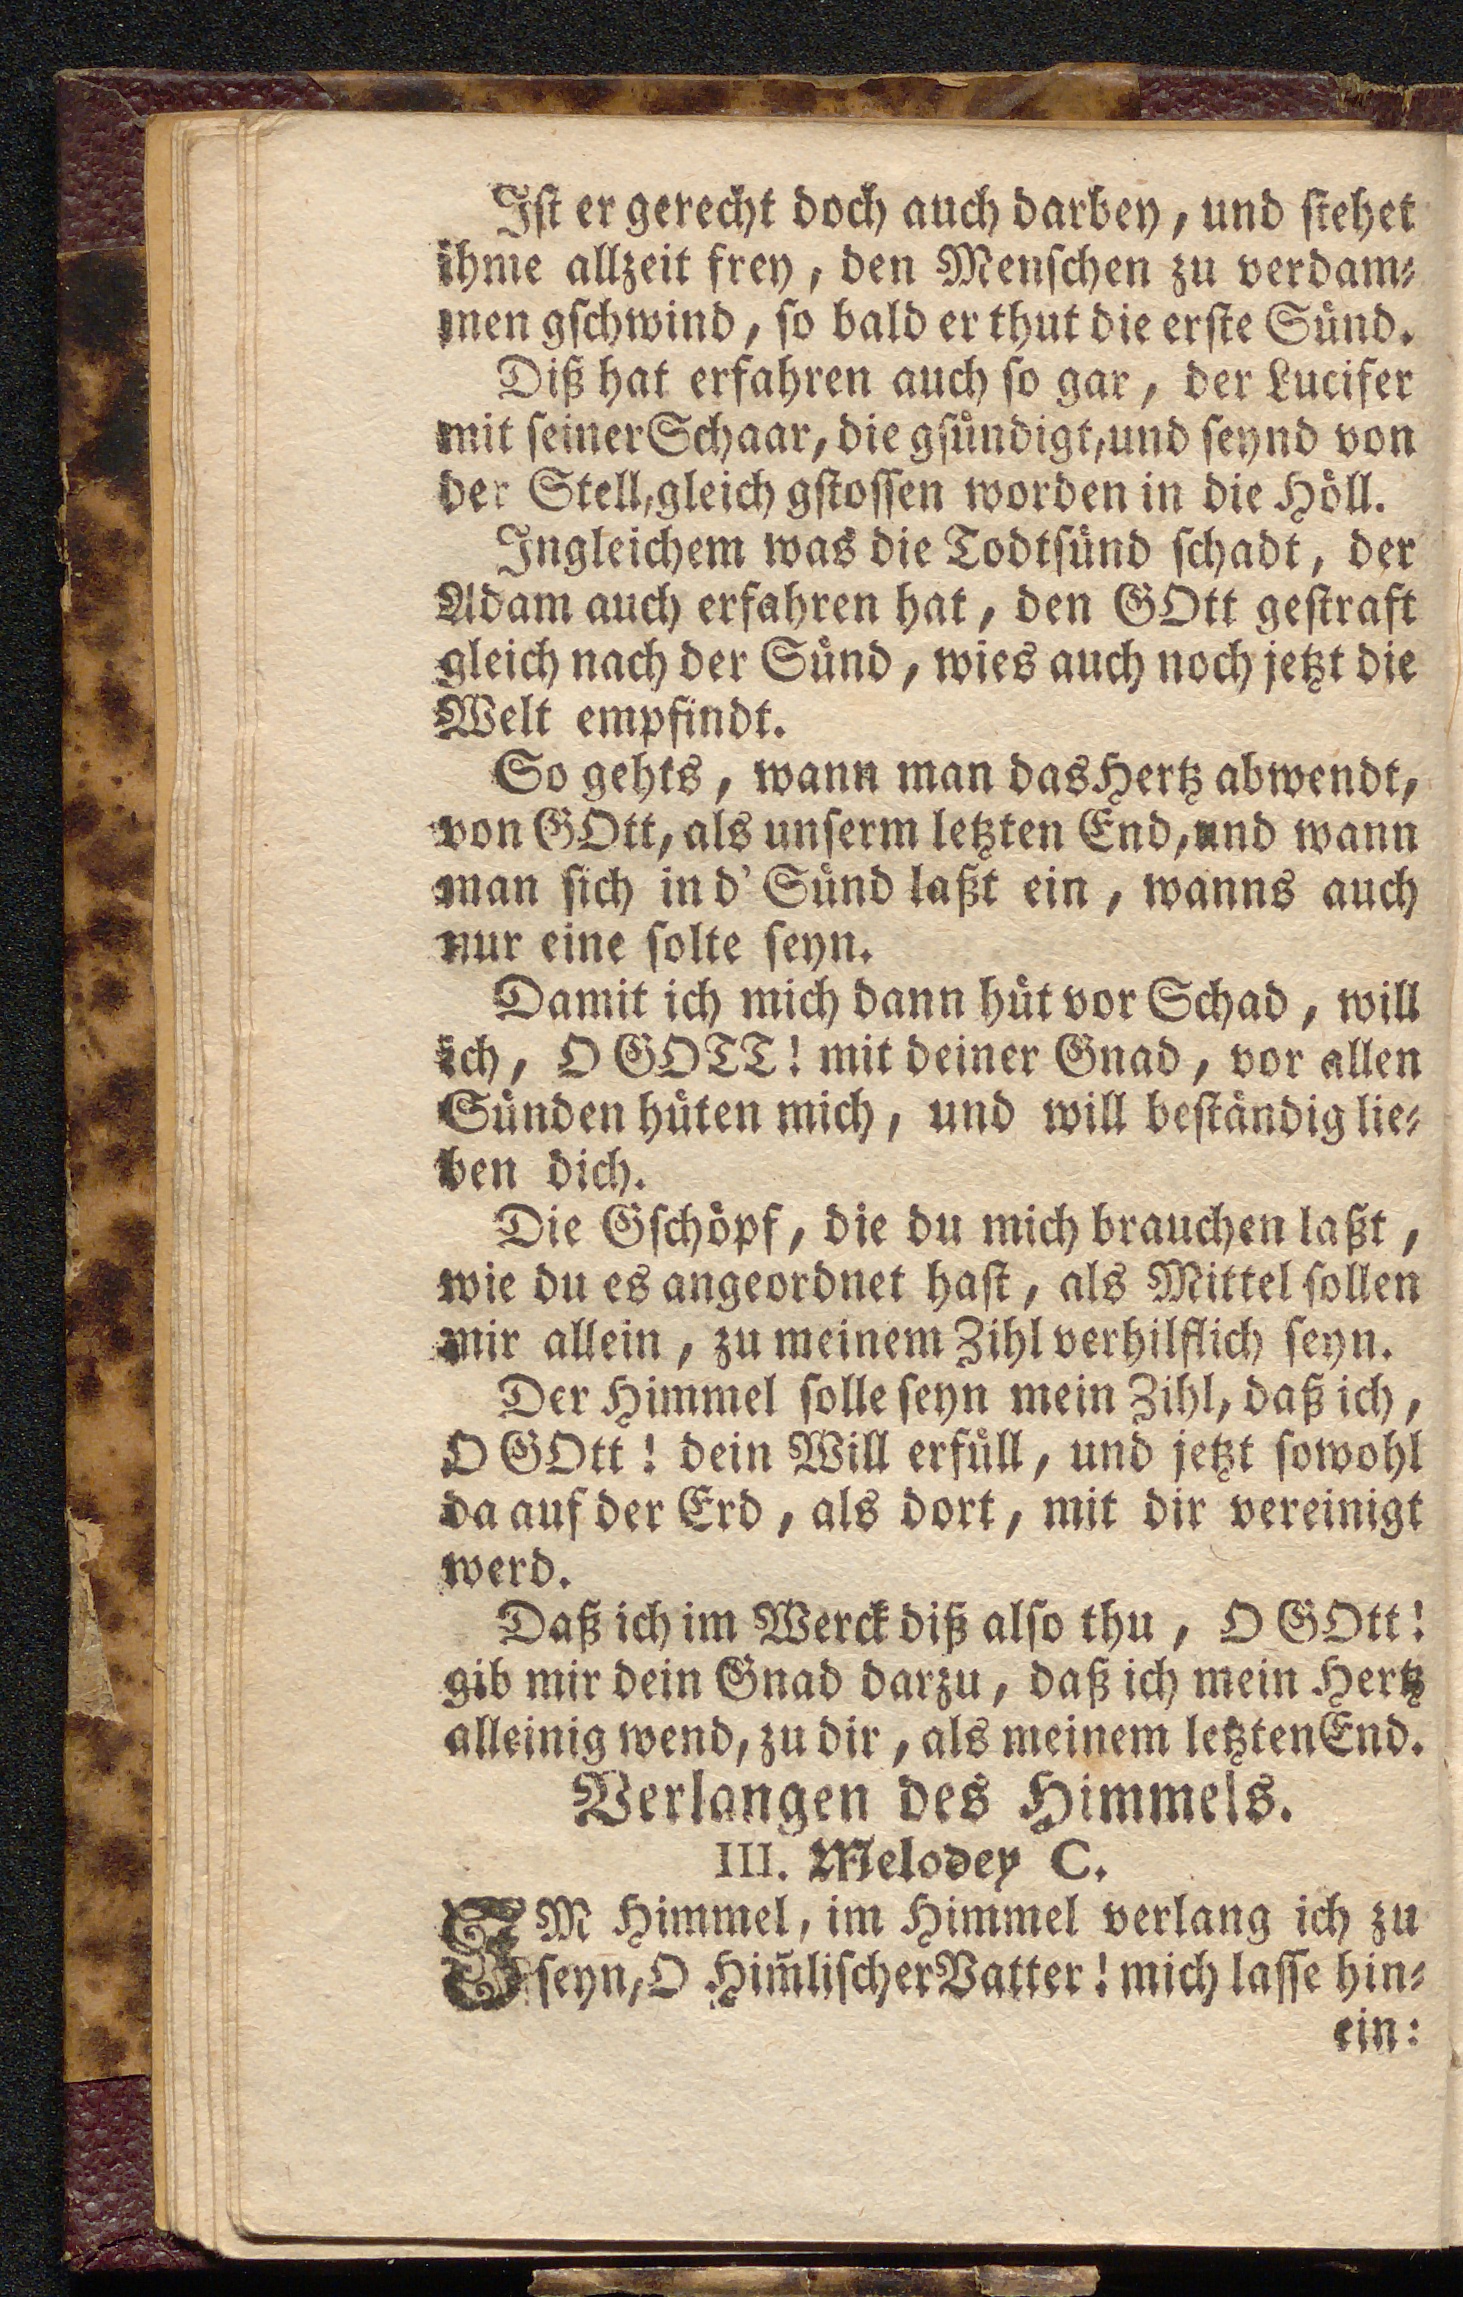 Ist er gerecht doch auch darbey, und stehet
ihme allzeit frey, den Menschen zu verdam⸗
men gschwind, so bald er thut die erste Sünd.
Diß hat erfahren auch so gar, der Lucifer
mit seiner Schaar, die gsündigt, und seynd von
der Stell, gleich gstossen worden in die Höll.
Ingleichem was die Todtsünd schadt, der
Adam auch erfahren hat, den GOtt gestraft
gleich nach der Sünd, wies auch noch jetzt die
Welt empfindt.
So gehts, wann man das Hertz abwendt,
von GOtt, als unserm letzten End, und wann
man sich in d' Sünd laßt ein, wanns auch
nur eine solte seyn.
Damit ich mich dann hüt vor Schad, will
ich, O GOTT! mit deiner Gnad, vor allen
Sünden hüten mich, und will beständig lie⸗
ben dich.
Die Gschöpf, die du mich brauchen laßt,
wie du es angeordnet hast, als Mittel sollen
mir allein, zu meinem Zihl verhilflich seyn.
Der Himmel solle seyn mein Zihl, daß ich,
O GOtt! dein Will erfüll, und jetzt sowohl
da auf der Erd, als dort, mit dir vereinigt
werd.
Daß ich im Werck diß also thu, O GOtt!
gib mir dein Gnad darzu, daß ich mein Hertz
alleinig wend, zu dir, als meinem letzten End.
Verlangen des Himmels.
III. Melodey C.
IM Himmel, im Himmel verlang ich zu
seyn, O Him̄lischer Vatter! mich lasse hin⸗
ein: